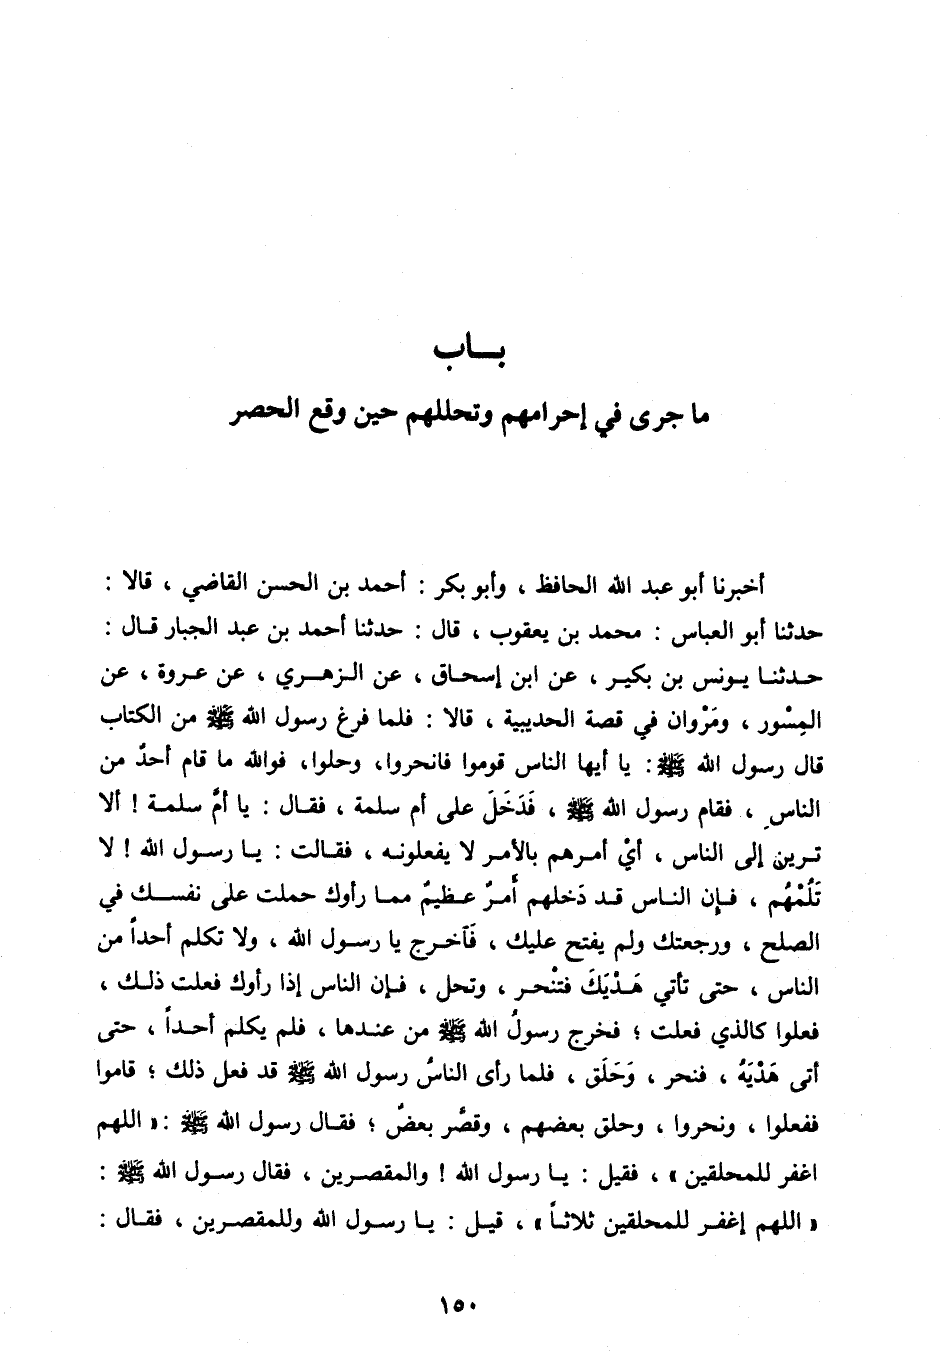 بـــاب
ما جرى في إحرامهم وتحللهم حين وقع الحصر
أخبرنا أبو عبد الله الحافظ ، وأبو بكر : أحمد بن الحسن القاضي ، قالا :
حدثنا أبو العباس : محمد بن يعقوب ، قال : حدثنا أحمد بن عبد الجبار قـال :
حـدثنـا يـونس بن بكيـر ، عن ابن إسحـاق ، عن الـزهـري ، عن عـروة ، عن
المِسْور ، ومَرْوان في قصة الحديبية ، قالا : فلما فرغ رسول الله ﷺ من الكتاب
قال رسول الله ﷺ : يا أيها الناس قوموا فانحروا، وحلوا، فوالله ما قام أحدٌ من
الناس ، فقام رسول الله ﷺ ، فَدَخَلَ على أم سلمة ، فقـال : يا أمَّ سلمـة ! ألا
تـرين إلى الناس ، أيْ آمـرهم بالأمـر لا يفعلونـه ، فقـالت : يـا رسـول الله ! لا
تَلُمْهُم ، فـإن النـاس قـد دَخلهم أَمـرٌ عـظيمٌ ممـا رأوك حملت على نفســك في
الصلح ، ورجعتك ولم يفتح عليك ، فَآخـرج يا رسـول الله ، ولا تكلم أحداً من
الناس ، حتى تأتي هَـدْيَكَ فتنْحـر ، وتحل ، فـإن الناس إذا رأوك فعلت ذلـك ،
فعلوا كالذي فعلت ؛ فخرج رسولُ الله ﷺ من عنـدها ، فلم يكلم أحـداً ، حتى
أتى هَدْيَهُ ، فنحر ، وَحَلَق ، فلما رأى الناسُ رسول الله ﷺ قد فعل ذلك ؛ قاموا
ففعلوا ، ونحروا ، وحلق بعضهم ، وقصَّر بعضٌ ؛ فقـال رسول الله ﷺ : « اللهم
اغفر للمحلقين » ، فقيل : يـا رسول الله ! والمقصـرين ، فقال رسـول الله ﷺ :
« اللهم إغفـر للمحلقين ثلاثـاً » ، قيـل : يـا رسـول الله وللمقصـرين ، فقـال :
١٥٠